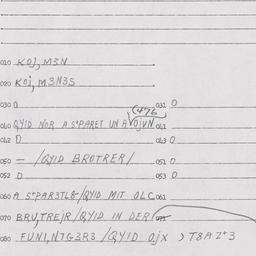 010 KOj, M3N
020 KOj, M3N3S
030 0 031 0
(476
040 QYID NOR A S*PARET UN A VOjVN 041
042 0 043 0
050 – /QYID BROTRER/ 051 0
052 0 053 0
060 A S*PAR3TL8-/QYID MIT OLC 061
070 BRU,TREjR/QYID IN DER/
080 FUNI,NTG3R3 /QYID Ojx )T8AI*3